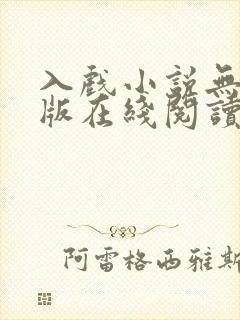 入戲小説無
版在綫閱讀
阿雷格西雅斯